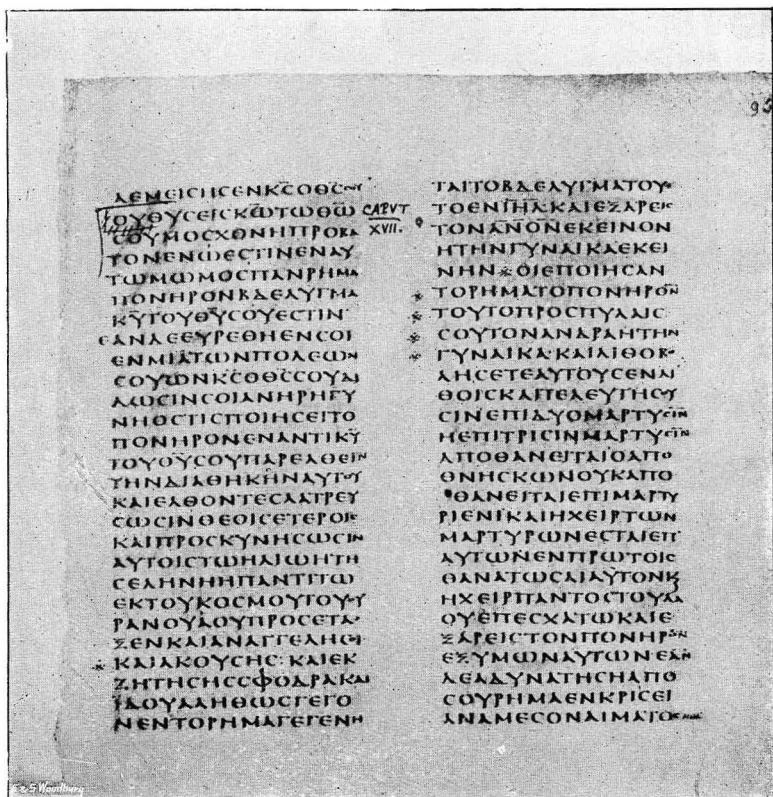 95
ΛΕΜΕΙСΗСΕΝΚ̅С̅ΟΘ̅С̅СΟΥ
ΟΥΘΥСΕΙСΚ̅Ω̅ΤΩΘ̅Ω̅
CAPVT XVII.
СΟΥΜΟСΧΟΝΗΠΡΟΒΑ
ΤΟΝΕΝΩΕСΤΙΝΕΝΑΥ
ΤΩΜΩΜΟСΠΑΝΡΗΜΑ
ΠΟΝΗΡΟΝΒΔΕΛΥΓΜΑ
Κ̅Υ̅ΤΟΥΘ̅Υ̅СΟΥΕСΤΙΝ
ΕΑΝΔΕΕΥΡΕΘΗΕΝСΟΙ
ΕΝΜΙΑΤΩΝΠΟΛΕΩΝ
СΟΥΩΝΚ̅С̅ΟΘ̅С̅СΟΥΔΙ
ΔΩСΙΝСΟΙΑΝΗΡΗΓΥ
ΝΗΟСΤΙСΠΟΙΗСΕΙΤΟ
ΠΟΝΗΡΟΝΕΝΑΝΤΙΚ̅Υ̅
ΤΟΥΘ̅Υ̅СΟΥΠΑΡΕΛΘΕΙΝ
ΤΗΝΔΙΑΘΗΚΗΝΑΥΤΟΥ
ΚΑΙΕΛΘΟΝΤΕСΛΑΤΡΕΥ
СΩСΙΝΘΕΟΙСΕΤΕΡΟΙС
ΚΑΙΠΡΟСΚΥΝΗСΩСΙΝ
ΑΥΤΟΙСΤΩΗΛΙΩΗΤΗ
СΕΛΗΝΗΗΠΑΝΤΙΤΩ
ΕΚΤΟΥΚΟСΜΟΥΤΟΥΟΥ
ΡΑΝΟΥΑΟΥΠΡΟСΕΤΑ
ΞΕΝΚΑΙΑΝΑΓΓΕΛΗСΟΙ
※ ΚΑΙΑΚΟΥСΗС:ΚΑΙΕΚ
ΖΗΤΗСΗССΦΟΔΡΑΚΑΙ
ΪΔΟΥΑΛΗΘΩСΓΕΓΟ
ΝΕΝΤΟΡΗΜΑΓΕΓΕΝΗ
ΤΑΙΤΟΒΔΕΛΥΓΜΑΤΟΥ
ΤΟΕΝΙ̅Η̅Λ̅ΚΑΙΕΞΑΡΕΙС
ΤΟΝΑ̅Ν̅Ο̅Ν̅ΕΚΕΙΝΟΝ
ΗΤΗΝΓΥΝΑΙΚΑΕΚΕΙ
ΝΗΝ※ΟΙΕΠΟΙΗСΑΝ
※ ΤΟΡΗΜΑΤΟΠΟΝΗΡΟΝ
※ ΤΟΥΤΟΠΡΟСΠΥΛΑΙС
※ СΟΥΤΟΝΑΝΔΡΑΗΤΗΝ
※ ΓΥΝΑΙΚΑ:ΚΑΙΛΙΘΟΒΟ
ΛΗСΕΤΕΑΥΤΟΥСΕΝΛΙ
ΘΟΙСΚΑΙΤΕΛΕΥΤΗСΟΥ
СΙΝΕΠΙΔΥΟΜΑΡΤΥСΙΝ
ΗΕΠΙΤΡΙСΙΝΜΑΡΤΥСΙΝ
ΑΠΟΘΑΝΕΙΤΑΙΟΑΠΟ
ΘΝΗСΚΩΝΟΥΚΑΠΟ
ΘΑΝΕΙΤΑΙΕΠΙΜΑΡΤΥ
ΡΙΕΝΙΚΑΙΗΧΕΙΡΤΩΝ
ΜΑΡΤΥΡΩΝΕСΤΑΙΕΠ
ΑΥΤΩΝΕΝΠΡΩΤΟΙС
ΘΑΝΑΤΩСΑΙΑΥΤΟΝΚ
ΗΧΕΙΡΠΑΝΤΟСΤΟΥΛΑ
ΟΥΕΠΕСΧΑΤΩΚΑΙΕ
ΞΑΡΕΙСΤΟΝΠΟΝΗΡΟΝ
ΕΞΥΜΩΝΑΥΤΩΝΕΑΝ
ΔΕΑΔΥΝΑΤΗСΗΑΠΟ
СΟΥΡΗΜΑΕΝΚΡΙСΕΙ
ΑΝΑΜΕСΟΝΑΙΜΑΤΟС
E & S Woodbury